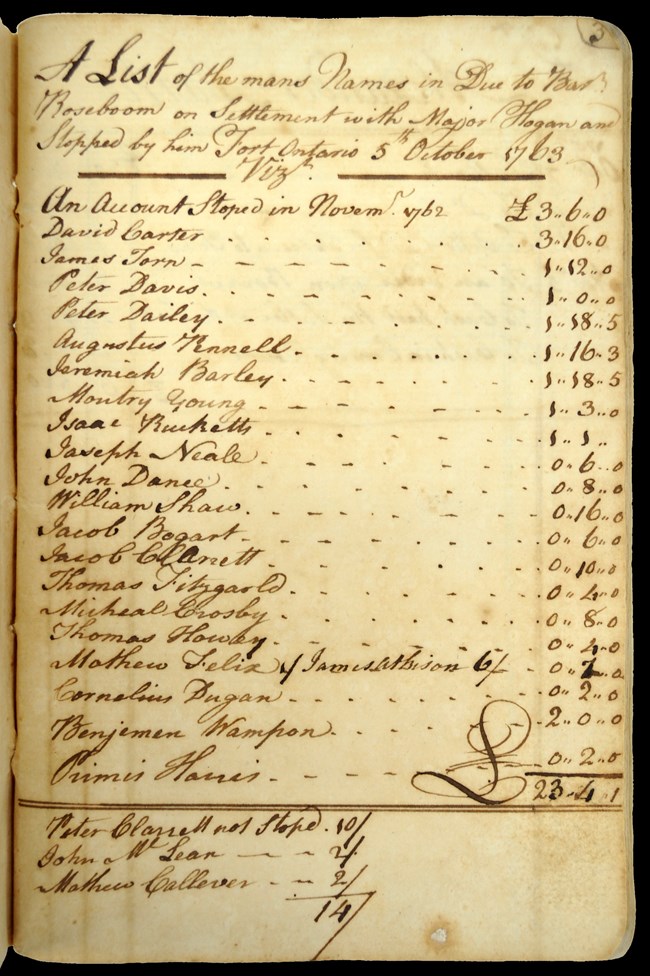 3
A List of the mans Names in Due to Bar.t
Roseboom on Settlement with Major Hogan and
Stopped by him Fort Ontario 5th October 1763
Viz.t
An Account Stoped in Novem.r 1762 £ 3..6..0
David Carter 3..16..0
James Torn 1..12..0
Peter Davis 1..0..0
Peter Dailey 1..18..5
Augustus Kennell 1..16..3
Jeremiah Barley 1..18..5
Moutry Young 1..3..0
Isaac Ricketts 1..1..
Joseph Neale 0..6..0
John Dance 0..8..0
William Shaw 0..16..0
Jacob Bogart 0..6..0
Jacob Clarrett 0..10..0
Thomas Fitzgarld 0..4..0
Micheal Crosby 0..8..0
Thomas Howey 0..4..0
Mathew Felix 1/ James 6/ 0..7..0
Cornelius Dugan 0..2..0
Benjemen Wampon 2..0..0
Primis Harris 0..2..0
£ 23..4..1
Peter Clarrett not Stoped 10/
John Mc Lean 2/
Mathew Callever 2/
14/